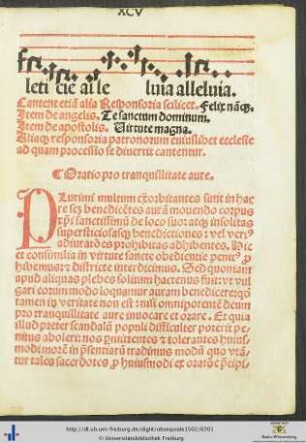 XCV
leti cie al le luia alleluia.
Cantent̄ etiā alia Responsoria scilicet. Felix nāq̄.
Item de angelis. Te sanctum dominum.
Item de apostolis. Uirtute magna.
Aliaq̄ responsoria patronorum cuiuslibet ecclesie
ad quam processio se diuertit cantentur.
Oratio pro tranquillitate aure.
Plurimi multum exorbitantes sunt in hac
re sez benedicētes aurā mouendo corpus
xp̄i sanctissimū de loco suo: atq̄ insolitas
supersticiosasq̄ benedictiones: vel
adiurādes prohibitas adhibentes. Hic
et consimilia in virtute sancte obedientie
hibemus & districte interdicimus. Sed quoniam
apud aliquas plebes solitum hactenus fuit: vt vul
gari eorum modo loquantur auram benedicere
tamen in veritate non est: nisi omnipotentē deum
pro tranquillitate aure inuocare et orare. Et quia
illud preter scandalū populi difficulter poterit pe
nitus aboleri: nos & tolerantes huius
modi morem in tradimus modū quo
tur tales sacerdotes huiusmodi et
http://dl.ub.uni-freiburg.de/diglit/obsequiale1502/0201
© Universitätsbibliothek Freiburg
Baden-Württemberg